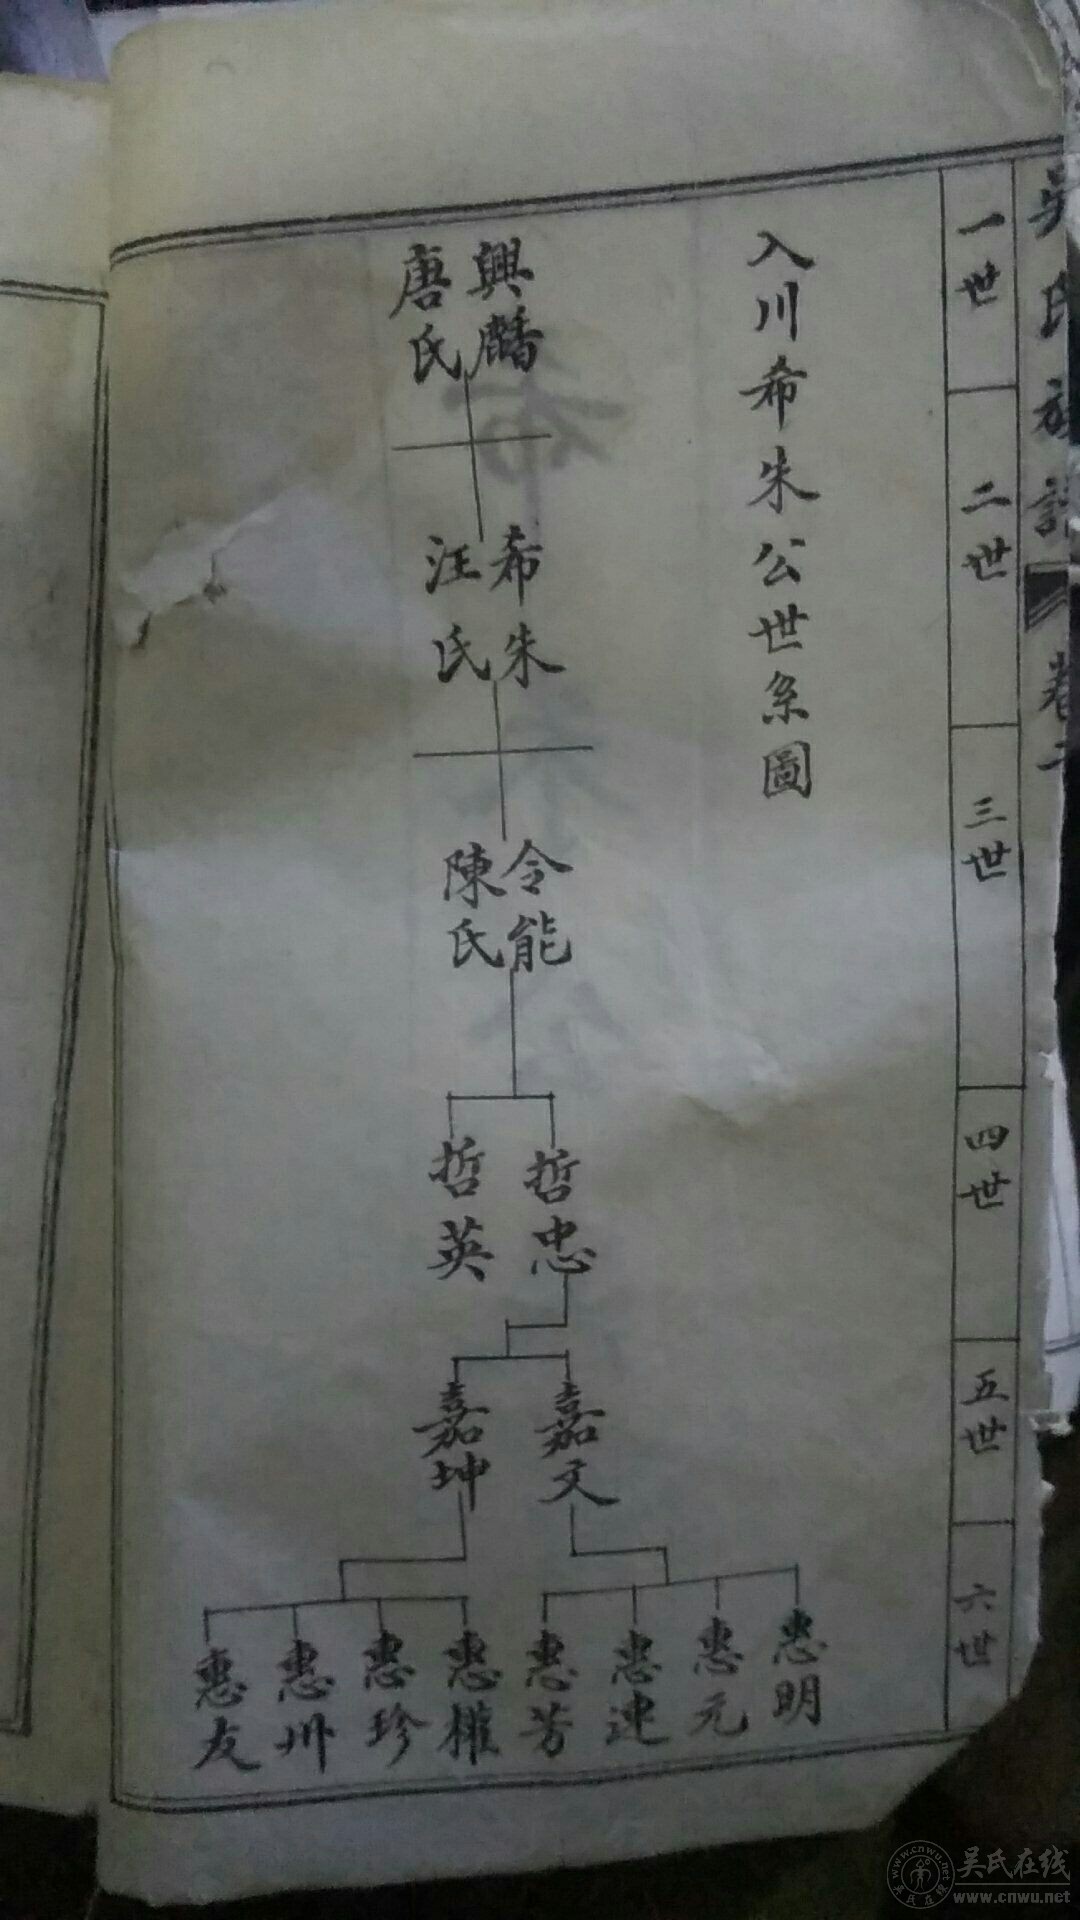 吳氏族譜
卷二
一世
二世
三世
四世
五世
六世
入川希朱公世系圖
興麟
唐氏
希朱
汪氏
令能
陳氏
哲忠
哲英
嘉文
嘉坤
惠明
惠元
惠連
惠芳
惠權
惠珍
惠川
惠友
吴氏在线
www.cnwu.net